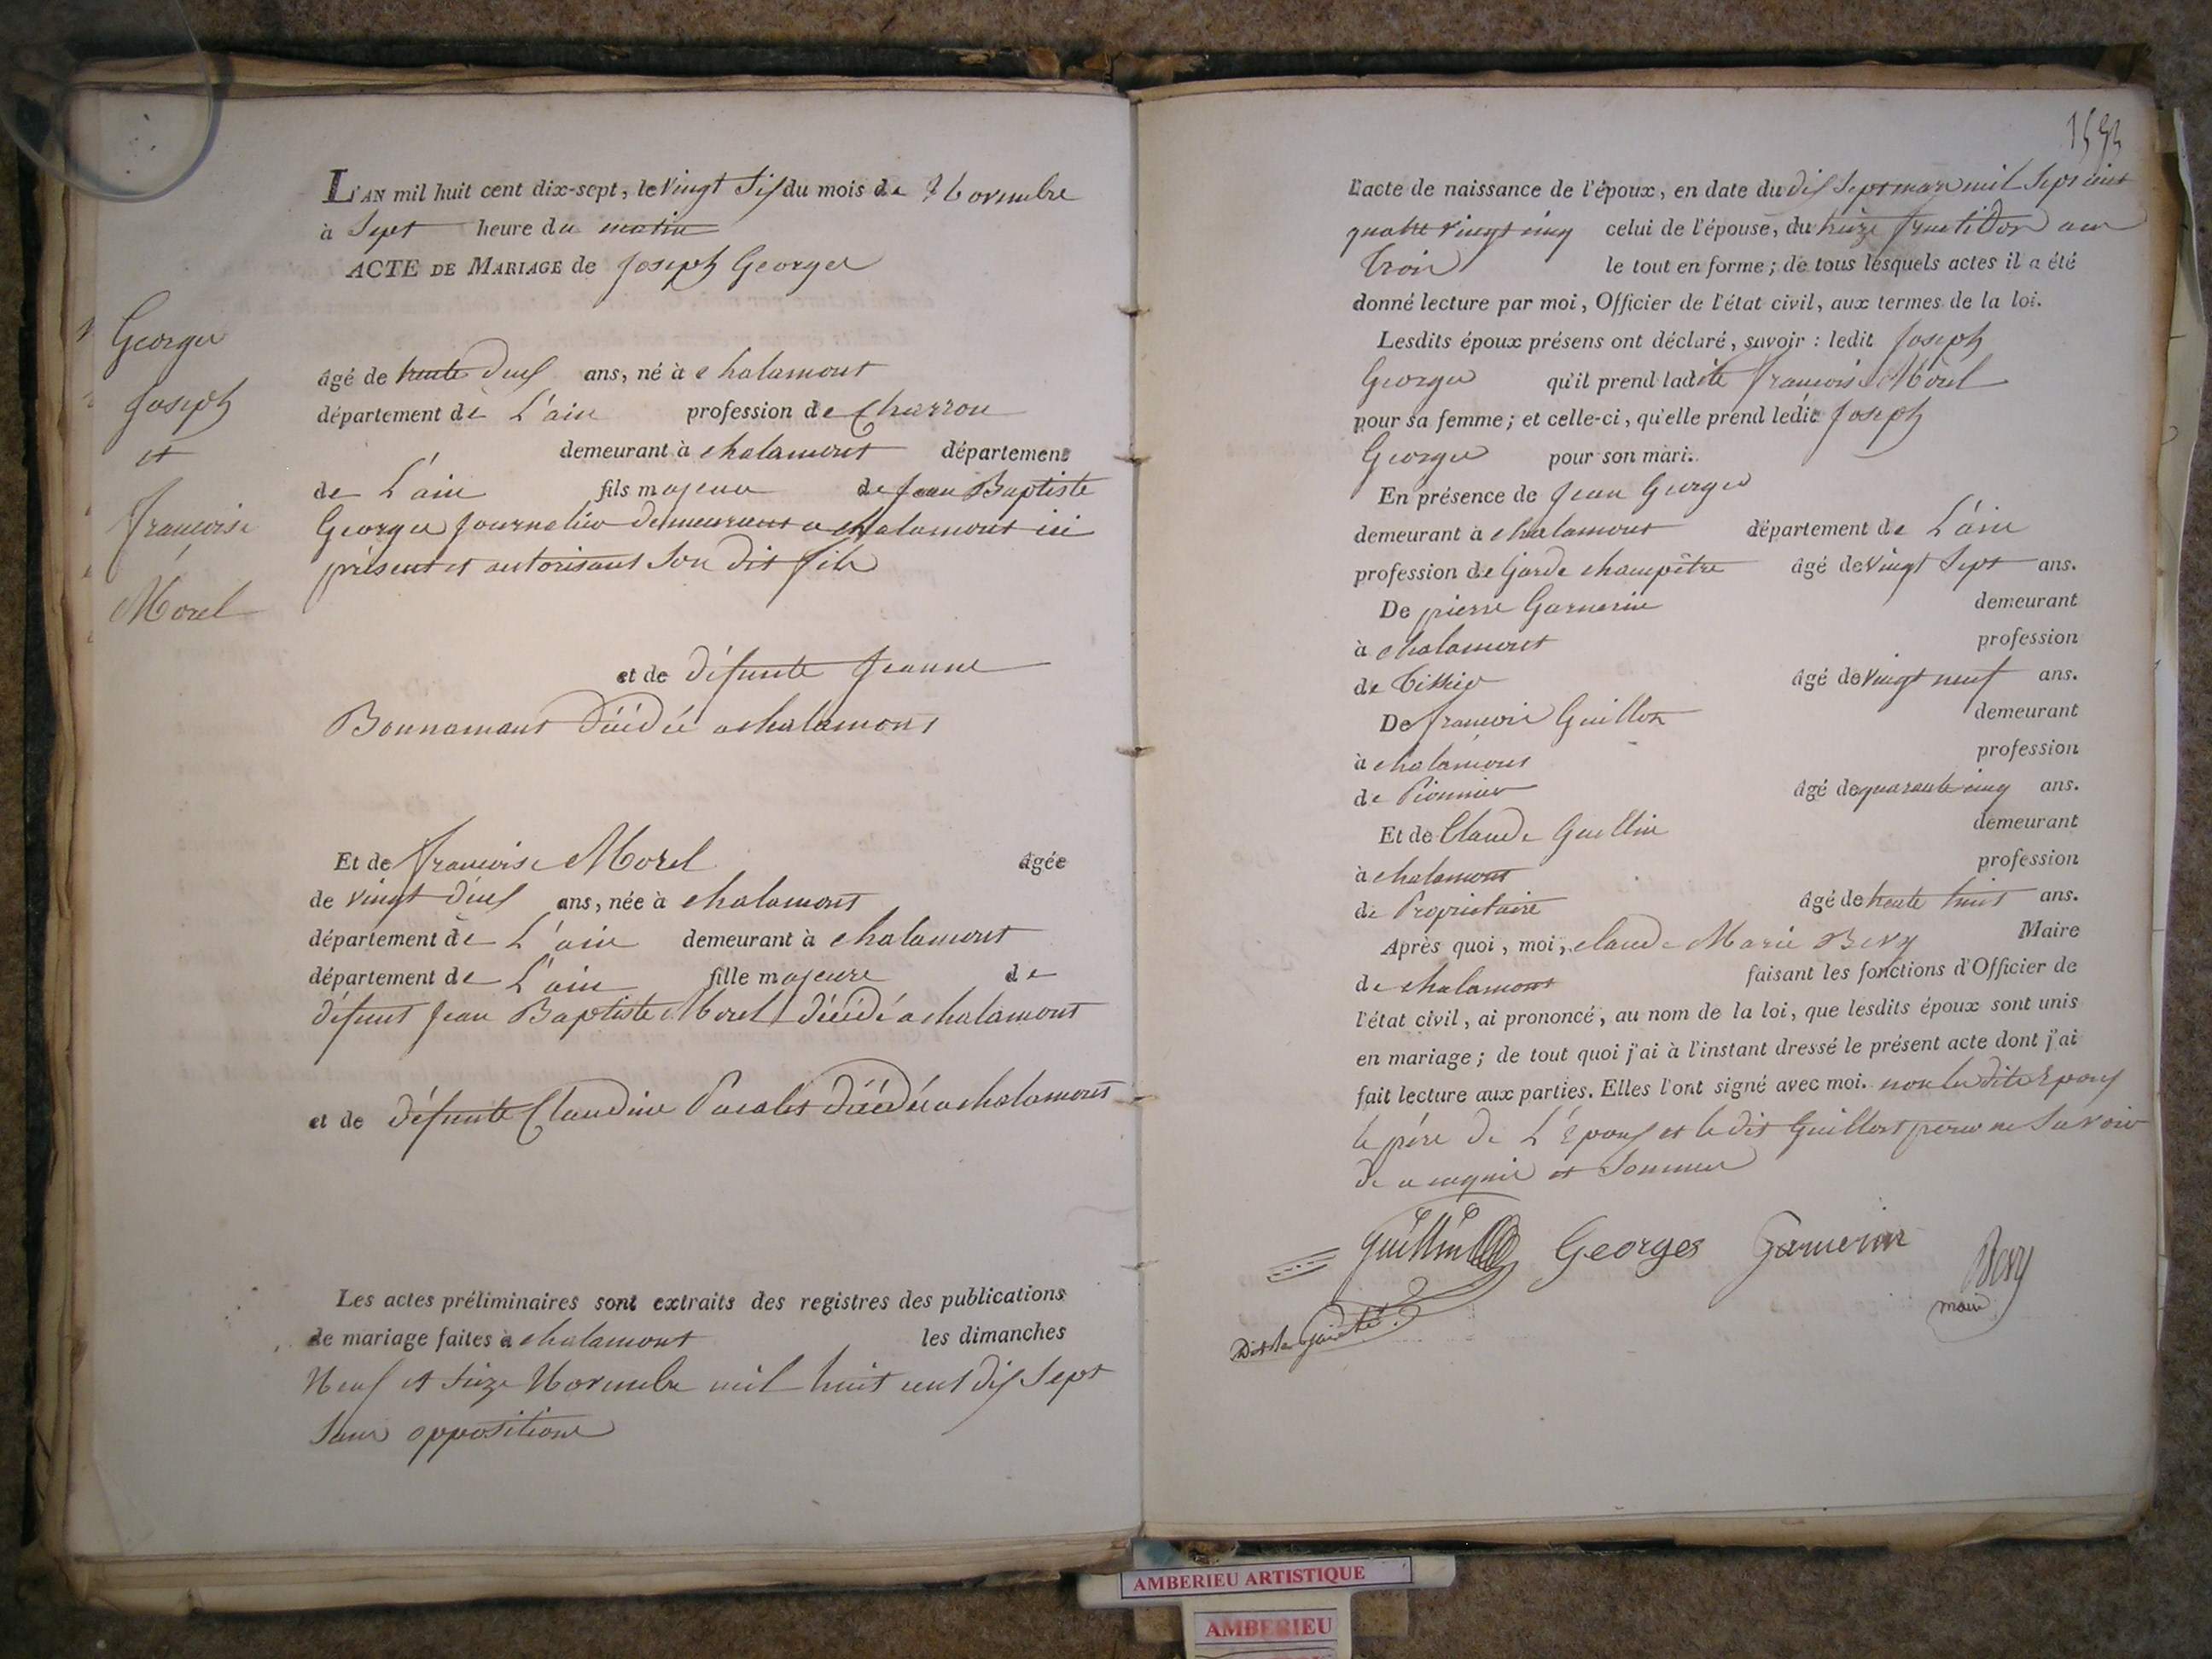 L'AN mil huit cent dix-sept, le vingt six du mois de Novembre
à Sept heure du matin
ACTE DE MARIAGE de Joseph Georges
Georges
Joseph
et
Francoise
Morel
âgé de trente deux ans, né à chalamont
département de L'ain profession de Charron
demeurant à chalamont département
de L'ain fils majeur de Jean Baptiste
Georges journalier demeurant a chalamont ici
présent et autorisant Son dit fils
et de défunte Jeanne
Bonnamant décédée a chalamont
Et de Francoise Morel âgée
de vingt deux ans, née à chalamont
département de L'ain demeurant à chalamont
département de L'ain fille majeure de
défunt Jean Baptiste Morel décédé a chalamont
et de défunte Claudine décédée a chalamont
Les actes préliminaires sont extraits des registres des publications
de mariage faites à chalamont les dimanches
Neuf et Seize Novembre mil huit cent dix Sept
Sans opposition
L'acte de naissance de l'époux, en date du dix Sept mars mil Sept cent
quatre vingt cinq celui de l'épouse, du treize fructidor an
Trois le tout en forme; de tous lesquels actes il a été
donné lecture par moi, Officier de l'état civil, aux termes de la loi.
Lesdits époux présens ont déclaré, savoir : ledit Joseph
Georges qu'il prend ladite Francoise Morel
pour sa femme; et celle-ci, qu'elle prend ledit Joseph
Georges pour son mari.
En présence de Jean Georges
demeurant à chalamont département de L'ain
profession de Garde champêtre âgé de vingt Sept ans.
De pierre Garnerin demeurant
à chalamont profession
de Tissier âgé de vingt neuf ans.
De francois Guillot demeurant
à chalamont profession
de Pionnier âgé de quarante cinq ans.
Et de Claude Guillin demeurant
à chalamont profession
de Propriétaire âgé de trente huit ans.
Après quoi, moi, claude Marie Bery Maire
de chalamont faisant les fonctions d'Officier de
l'état civil, ai prononcé, au nom de la loi, que lesdits époux sont unis
en mariage; de tout quoi j'ai à l'instant dressé le présent acte dont j'ai
fait lecture aux parties. Elles l'ont signé avec moi. non les dits Epoux
le père de L'Epoux et le dit Guillot pour ne Savoir
de ce requis et Sommes
Guillin Georges Garnerin Bery
maire
AMBERIEU ARTISTIQUE
AMBERIEU